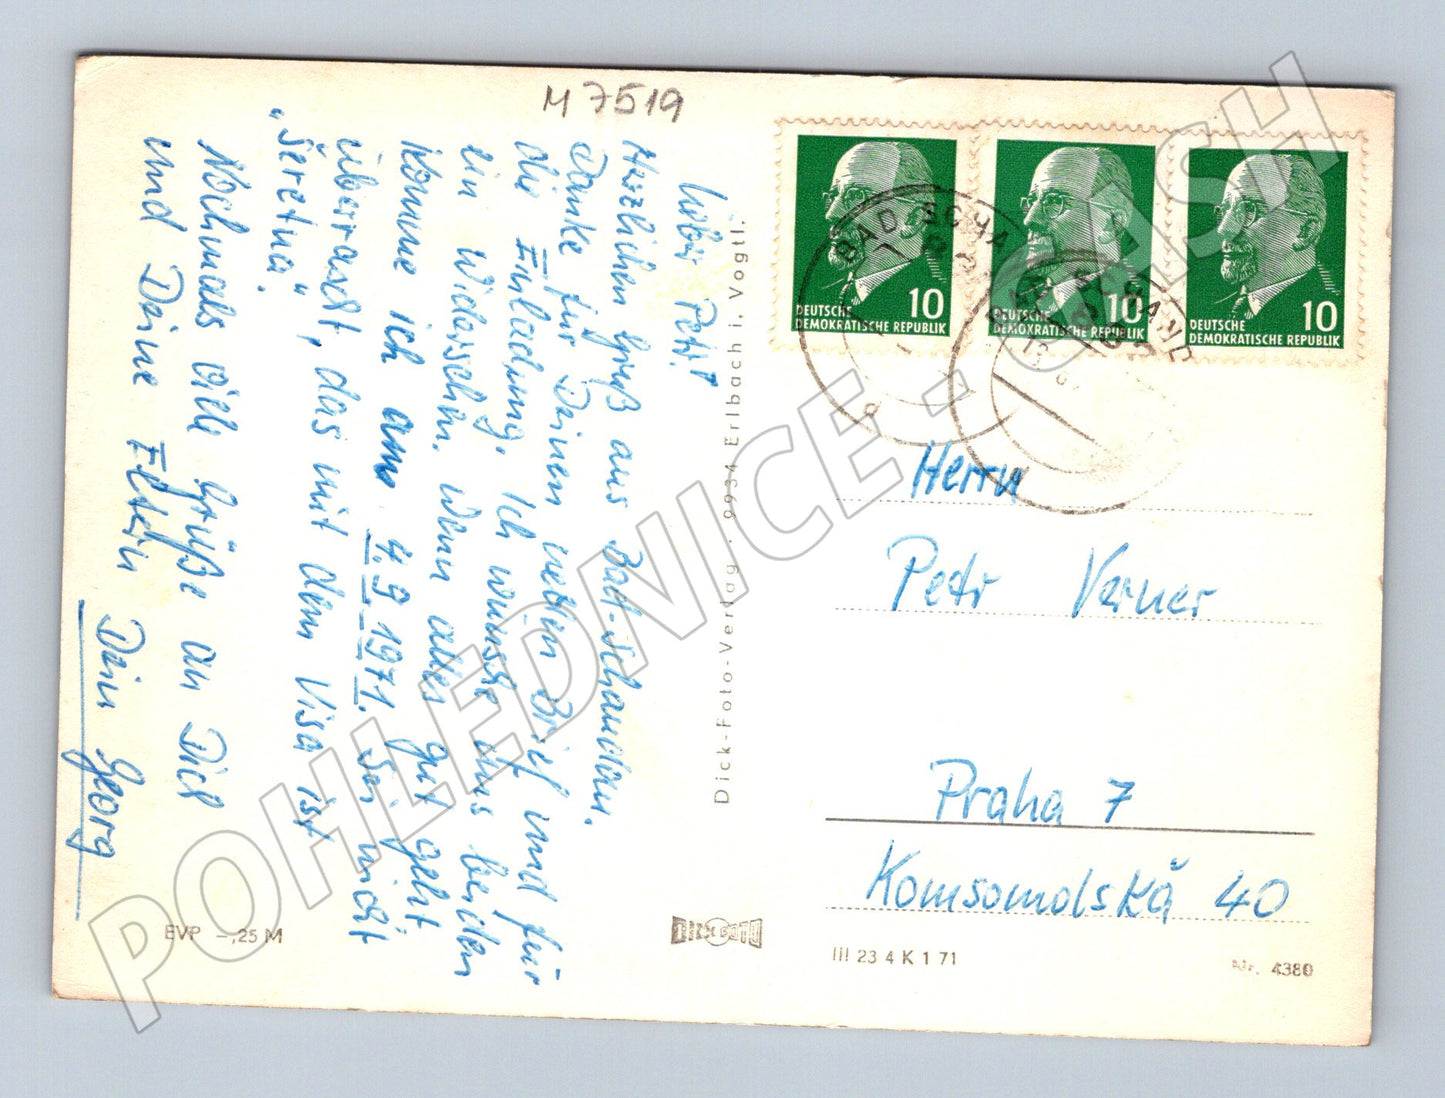 M 7519
Lieber Petr!
Herzlichen Gruß aus Bad-Schandau.
Danke für Deinen netten Brief und für
die Einladung. Ich wünsche uns beiden
ein Wiedersehen. Wenn alles gut geht
komme ich am 4.9.1971. Sei nicht
überrascht, das mit dem Visa ist
"Šeretna".
Nochmals viele Grüße an Dich
und Deine Eltern Dein Georg
EVP -,25 M
Dick-Foto-Verlag · 9934 Erlbach i. Vogtl.
DICK FOTO
10
DEUTSCHE
DEMOKRATISCHE REPUBLIK
10
DEUTSCHE
DEMOKRATISCHE REPUBLIK
10
DEUTSCHE
DEMOKRATISCHE REPUBLIK
BAD SCHANDAU
Herrn
Petr Verner
Praha 7
Komsomolská 40
III 23 4 K 1 71
Nr. 4380
POHLEDNICE - CASH